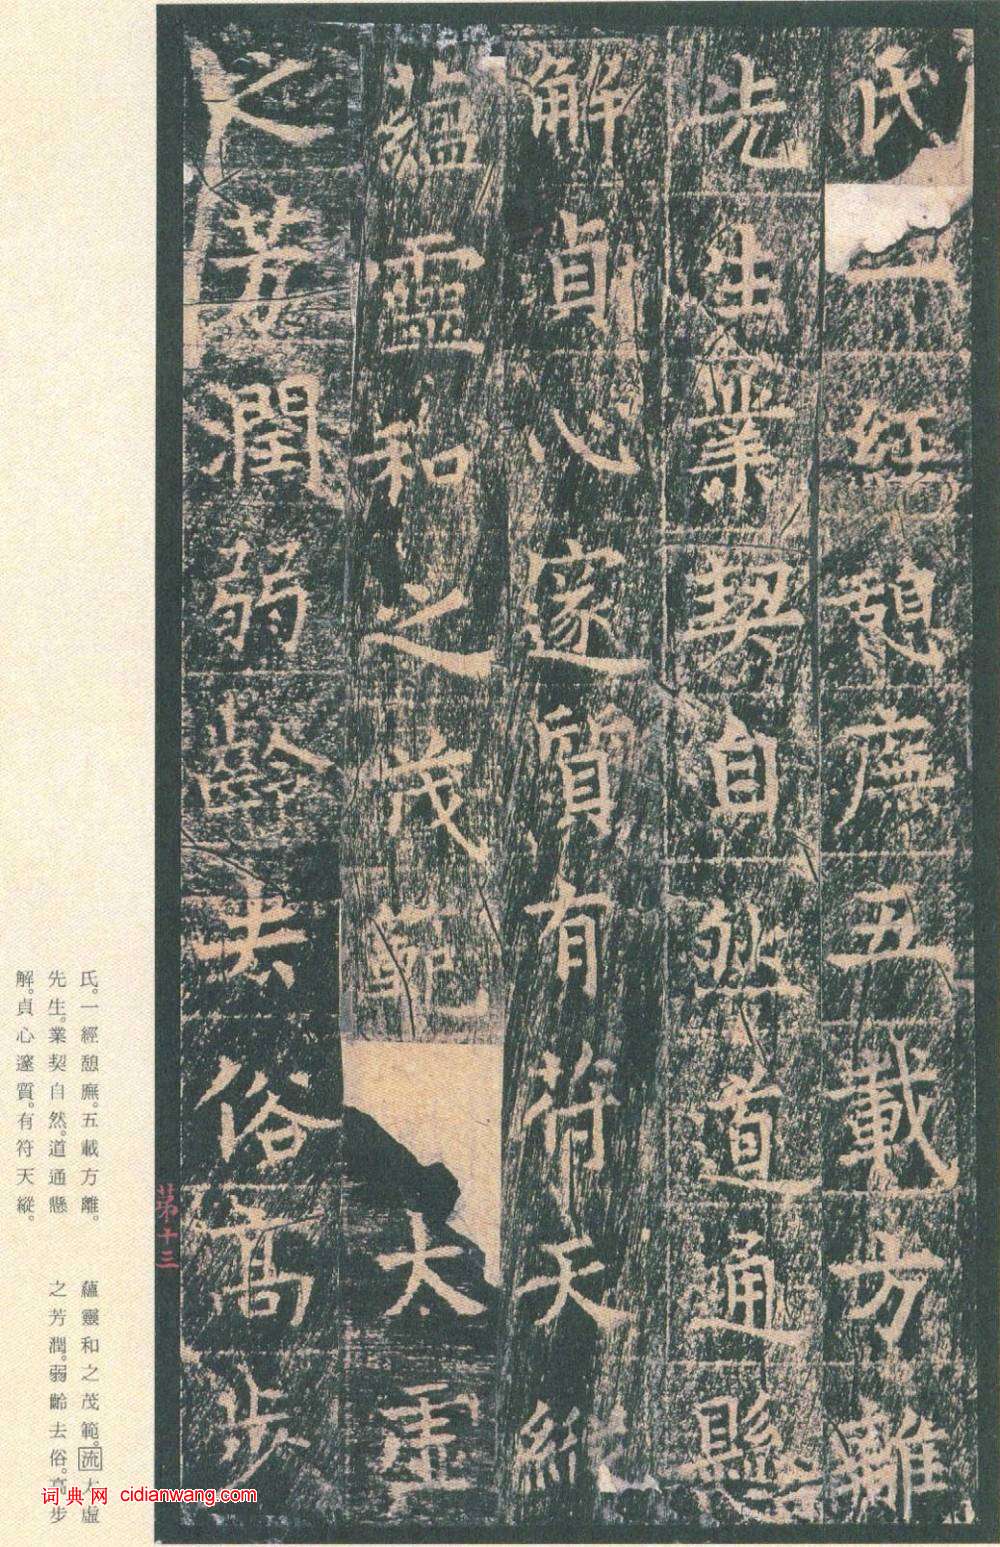 氏一經憩廡五載方離
先生業契自然道通懸
解貞心邃質有符天縱
蘊靈和之茂範太虛
之芳潤弱齡去俗高步
第十三
氏。一經憩廡。五載方離。
先生。業契自然。道通懸
解。貞心邃質。有符天縱。
蘊靈和之茂範。流太虛
之芳潤。弱齡去俗。高步
词典网 cidianwang.com